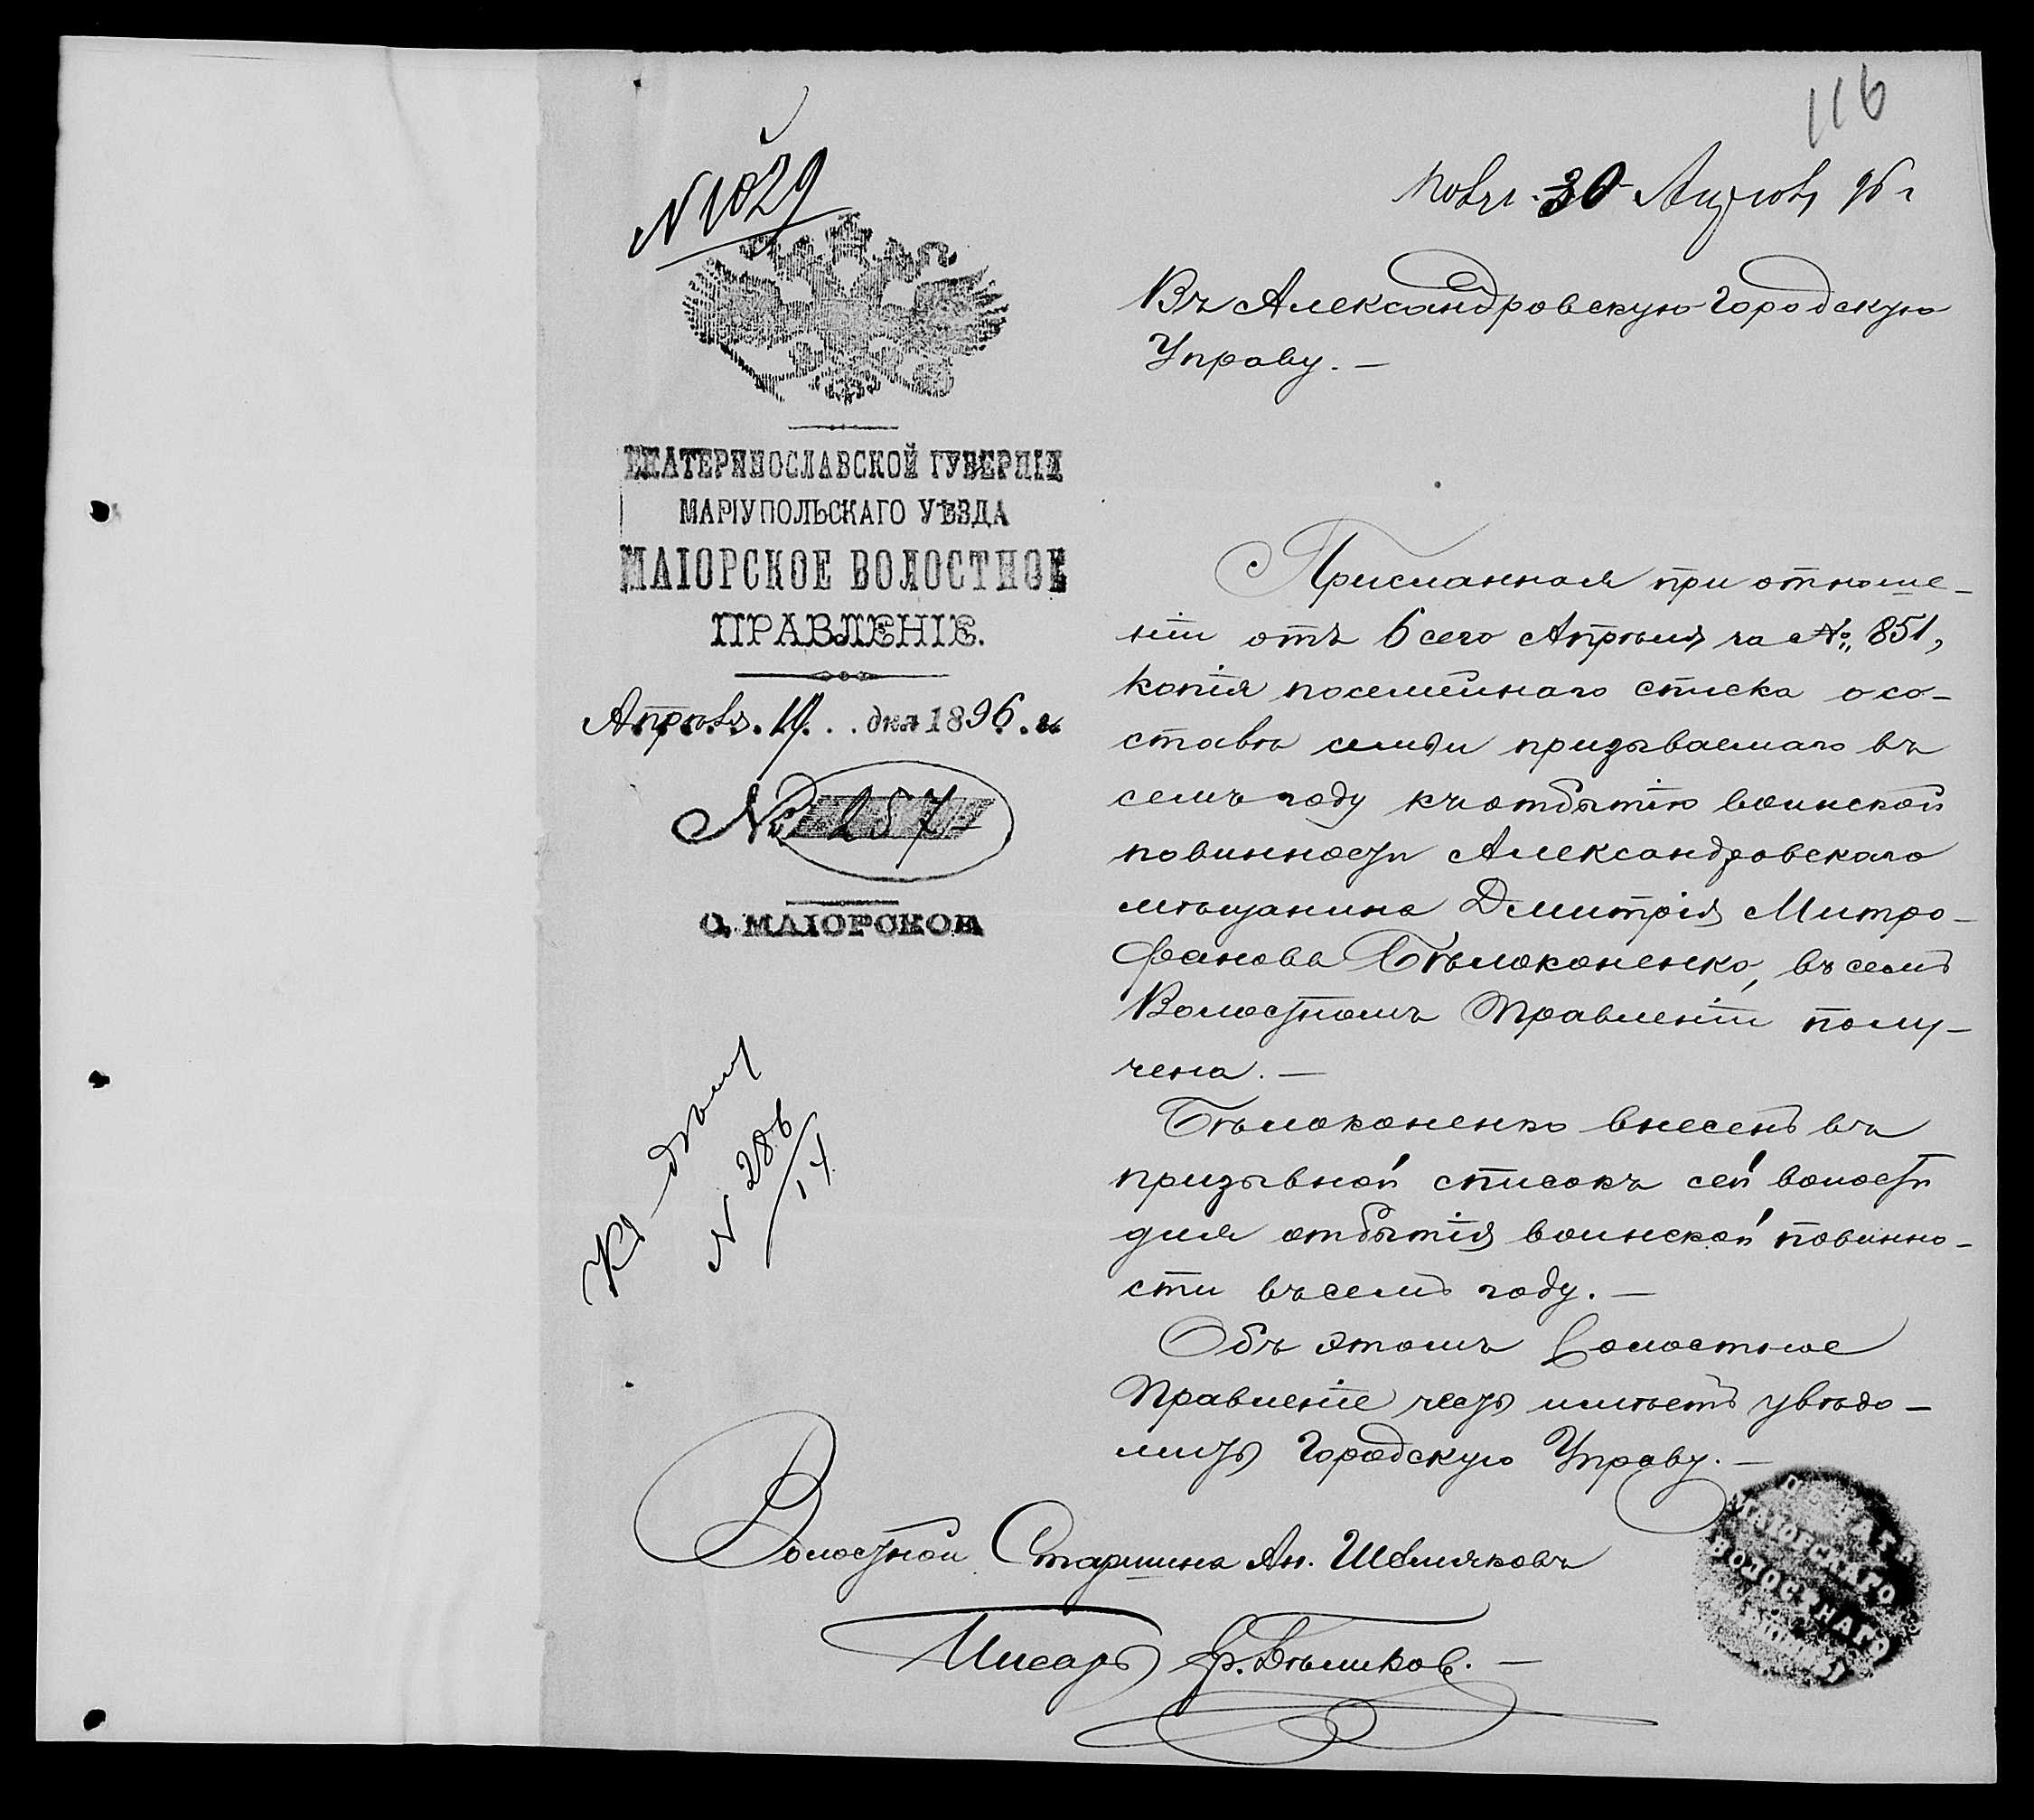 116
N 1029
Получ. 30 Апрѣля 96 г
Въ Александровскую Городскую
Управу. —
ЕКАТЕРИНОСЛАВСКОЙ ГУБЕРНІИ
МАРІУПОЛЬСКАГО УѢЗДА
МАІОРСКОЕ ВОЛОСТНОЕ
ПРАВЛЕНІЕ.
Апрѣля дня 1896. г.
№ 257
С. МАІОРСКОЕ
Присланная при отноше-
ніи отъ 6 сего Апрѣля за №, 851,
копія посемейнаго списка о со-
ставѣ семьи призываемаго въ
семъ году къ отбытію воинской
повинности Александровскаго
мѣщанина Дмитрія Митро-
фанова Бѣлоконенко, въ семъ
Волостномъ Правленіи полу-
чена. —
Бѣлоконенко внесенъ въ
призывной списокъ сей волости
для отбытія воинской повинно-
сти въ семъ году. —
Объ этомъ Волостное
Правленіе честь имѣетъ увѣдо-
мить Городскую Управу. —
Къ дѣлу
N 286
Волостной Старшина Ан.
Писарь
ПЕЧАТЬ
МАІОРСКАГО
ВОЛОСТНАГО